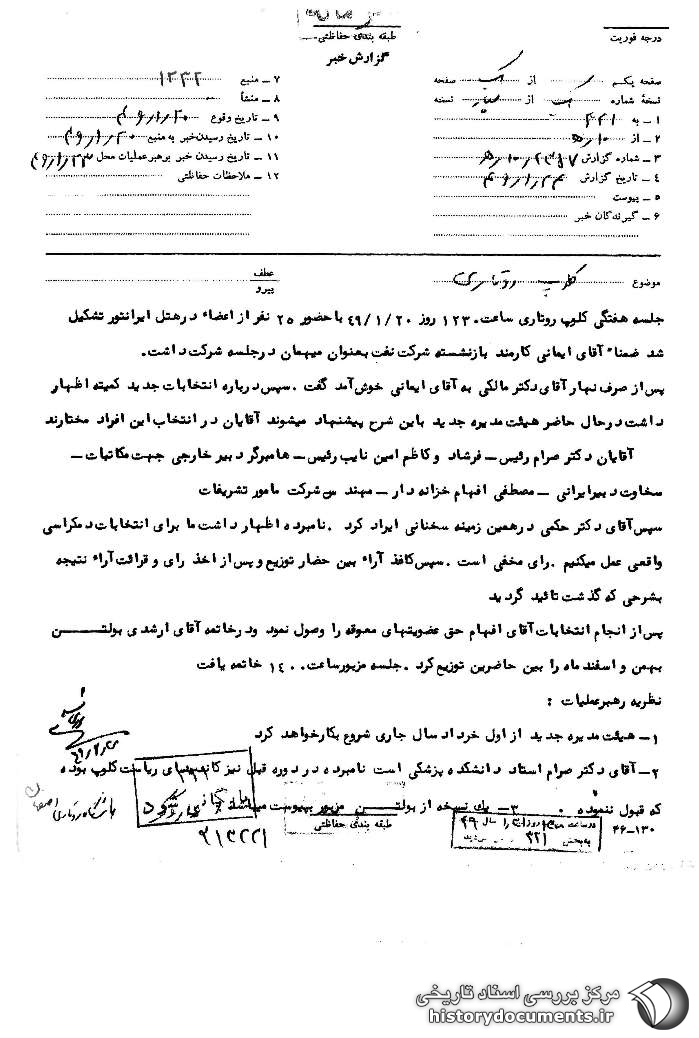 درجه فوریت
طبقه بندی حفاظتی
گزارش خبر
صفحه یکم از یک صفحه
نسخهٔ شماره از چهار نسخه
۱ – به ۳۴۱
۲ – از ۱۰ ه‍
۳ – شماره گزارش
۴ – تاریخ گزارش
۵ – پیوست
۶ – گیرندگان خبر
۷ – منبع ۱۲۳۲
۸ – منشأ
۹ – تاریخ وقوع ۲۰ ر ۱ ر ۴۹
۱۰ – تاریخ رسیدن خبر به منبع ۲۰ ر ۱ ر ۴۹
۱۱ – تاریخ رسیدن خبر برهبر عملیات محل ۲۳ ر ۱ ر ۴۹
۱۲ – ملاحظات حفاظتی
موضوع کلوپ روتاری
عطف
پیرو
جلسه هفتگی کلوپ روتاری ساعت ۱۲۳۰ روز ۴۹/۱/۲۰ با حضور ۲۵ نفر از اعضاء در هتل ایرانتور تشکیل
شد ضمناً آقای ایمانی کارمند بازنشسته شرکت نفت بعنوان میهمان در جلسه شرکت داشت.
پس از صرف نهار آقای دکتر مالکی به آقای ایمانی خوش آمد گفت .سپس درباره انتخابات جدید کمیته اظهار
داشت در حال حاضر هیئت مدیره جدید باین شرح پیشنهاد میشوند آقایان در انتخاب این افراد مختارند
آقایان دکتر صرام رئیس – فرشاد و کاظم امین نایب رئیس – هامبرگر دبیر خارجی جهت مکاتبات –
سخاوت دبیر ایرانی – مصطفی افهام خزانه دار – مهندس شرکت مامور تشریفات
سپس آقای دکتر حکمی در همین زمینه سخنانی ایراد کرد .نامبرده اظهار داشت ما برای انتخابات دمکراسی
واقعی عمل میکنیم .رای مخفی است .سپس کاغذ آراء بین حضار توزیع و پس از اخذ رای و قرائت آراء نتیجه
بشرحی که گذشت تائید گردید
پس از انجام انتخابات آقای افهام حق عضویتهای معوقه را وصول نمود ودرخاتمه آقای ارشدی بولتن
بهمن و اسفند ماه را بین حاضرین توزیع کرد .جلسه مزبور ساعت ۱۴۰۰ خاتمه یافت
نظریه رهبر عملیات :
۱ – هیئت مدیره جدید از اول خرداد سال جاری شروع بکار خواهد کرد
۲ – آقای دکتر صرام استاد دانشکده پزشکی است نامبرده در دوره قبل نیز کاندیدای ریاست کلوپ بوده
که قبول ننموده . ۳ – یک نسخه از بولتن مزبور بپیوست
باشگاه روتاری اصفهان
بایگانی شود
۳۱۳۲۲۱
طبقه بندی حفاظتی
در ساعت روز سال ۴۹
به بخش ۳۴۱
۴۶-۱۳۰
مرکز بررسی اسناد تاریخی
historydocuments.ir